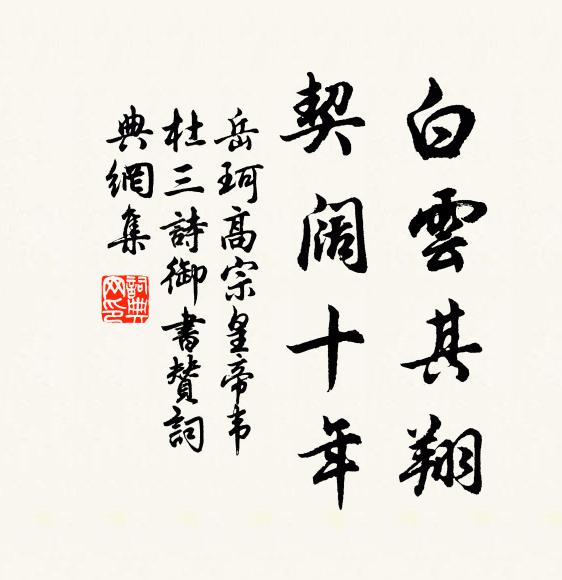 白雲其翔
契阔十年
岳珂高宗皇帝韦
杜三詩御書贊詞
典網集
詞典網印